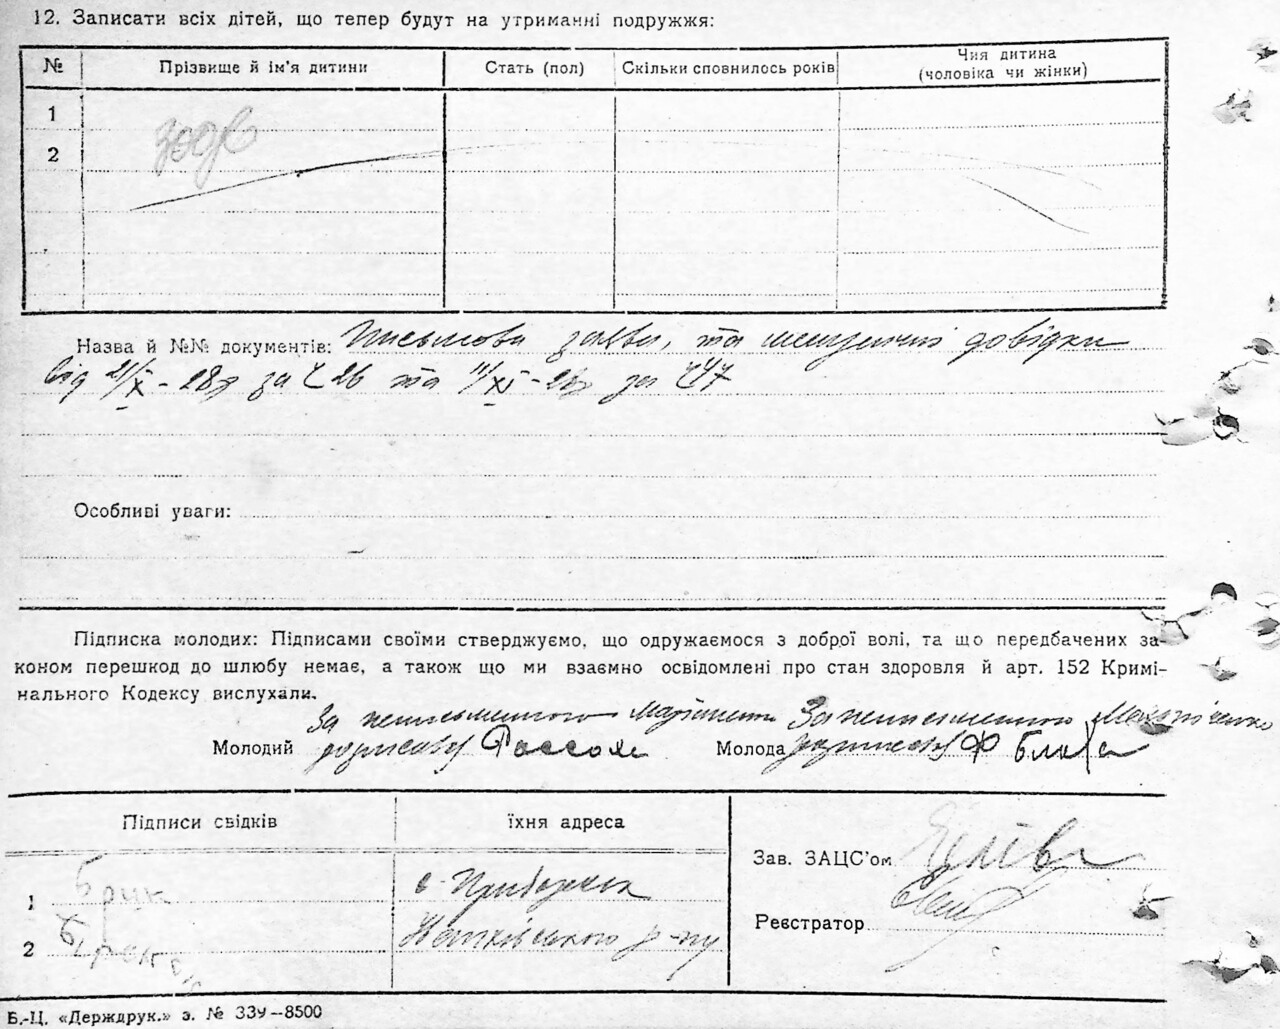 12. Записати всіх дітей, що тепер будут на утриманні подружжя:
№ Прізвище й ім'я дитини Стать (пол) Скільки сповнилось років Чия дитина (чоловіка чи жінки)
1
2
Назва й №№ документів: Письмова заява, та довідки
від 21/X - 28р за № 26 та 11/XI - 28р за № 47
Особливі уваги:
Підписка молодих: Підписами своїми стверджуємо, що одружаємося з доброї волі, та що передбачених за-
коном перешкод до шлюбу немає, а також що ми взаємно освідомлені про стан здоровля й арт. 152 Кримі-
нального Кодексу вислухали.
За неписьменного За неписьменною
Молодий Молода
Підписи свідків їхня адреса
Зав. ЗАЦС'ом
1 Брик с.
Реєстратор
2 р-ну
Б.-Ц. «Держдрук.» з. № 339–8500